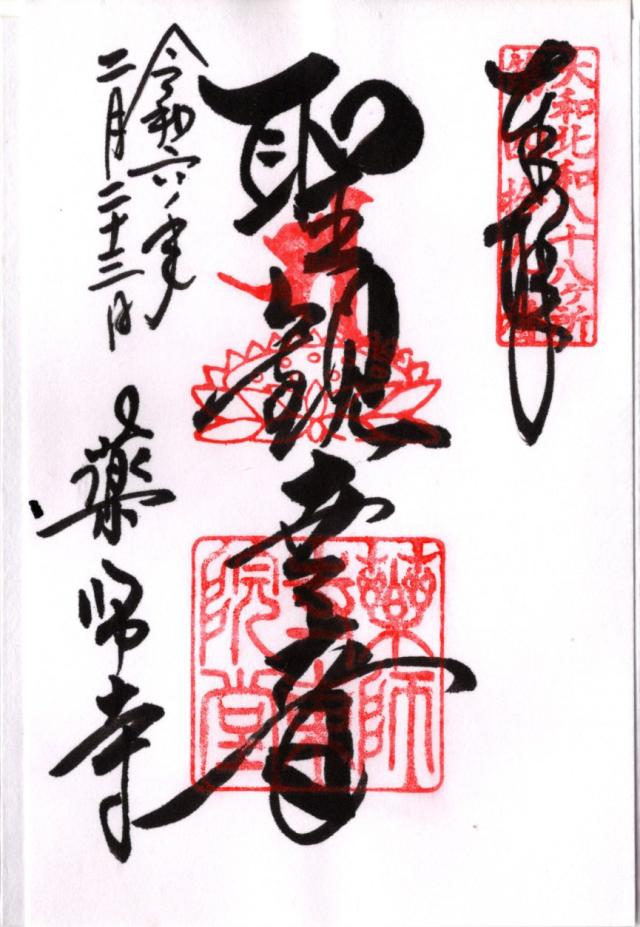 奉拝
大和北和八十八ヶ所
聖観世音
薬師寺
東院堂
令和六年
二月二十三日
薬師寺